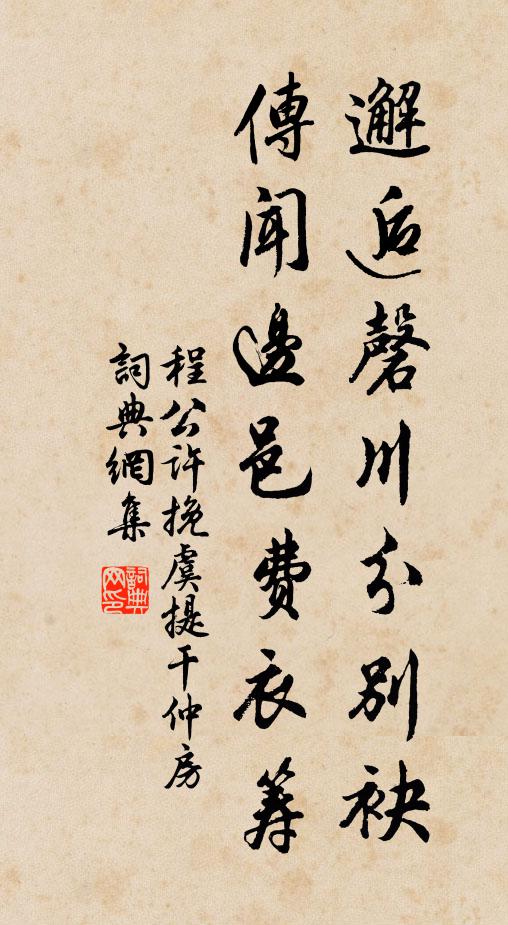 邂逅磬川分別袂
傳聞邊邑費衣籌
程公許挽虞提干仲房
詞典網集
詞典網印